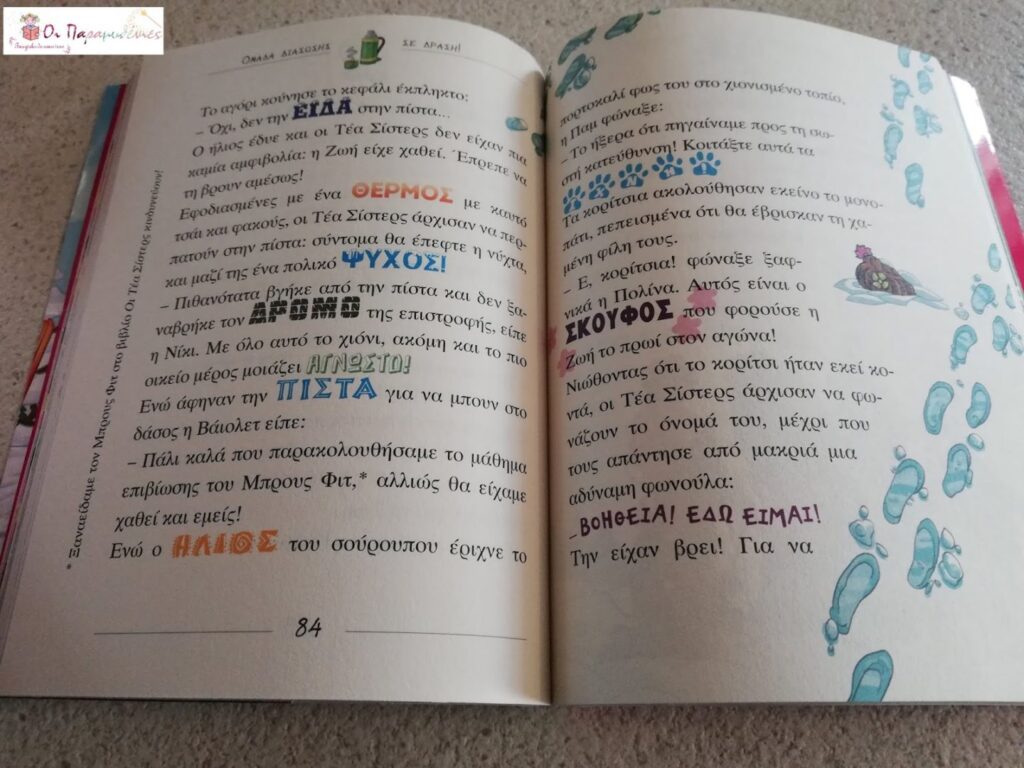 Οι Παραμυθένιες
ΟΜΑΔΑ ΔΙΑΣΩΣΗΣ ΣΕ ΔΡΑΣΗ!
Το αγόρι κούνησε το κεφάλι έκπληκτο:
– Όχι, δεν την ΕΙΔΑ στην πίστα...
Ο ήλιος έδυε και οι Τέα Σίστερς δεν είχαν πια
καμία αμφιβολία: η Ζωή είχε χαθεί. Έπρεπε να
τη βρουν αμέσως!
Εφοδιασμένες με ένα ΘΕΡΜΟΣ με καυτό
τσάι και φακούς, οι Τέα Σίστερς άρχισαν να περ-
πατούν στην πίστα: σύντομα θα έπεφτε η νύχτα,
και μαζί της ένα πολικό ΨΥΧΟΣ!
– Πιθανότατα βγήκε από την πίστα και δεν ξα-
ναβρήκε τον ΔΡΟΜΟ της επιστροφής, είπε
η Νίκι. Με όλο αυτό το χιόνι, ακόμη και το πιο
οικείο μέρος μοιάζει ΑΓΝΩΣΤΟ!
Ενώ άφηναν την ΠΙΣΤΑ για να μπουν στο
δάσος η Βάιολετ είπε:
– Πάλι καλά που παρακολουθήσαμε το μάθημα
επιβίωσης του Μπρους Φιτ,* αλλιώς θα είχαμε
χαθεί και εμείς!
Ενώ ο ΗΛΙΟΣ του σούρουπου έριχνε το
* Ξαναείδαμε τον Μπρους Φιτ στο βιβλίο Οι Τέα Σίστερς κινδυνεύουν!
84
πορτοκαλί φως του στο χιονισμένο τοπίο,
η Παμ φώναξε:
– Το ήξερα ότι πηγαίναμε προς τη σω-
στή κατεύθυνση! Κοιτάξτε αυτά τα
Τα κορίτσια ακολούθησαν εκείνο το μονο-
πάτι, πεπεισμένα ότι θα έβρισκαν τη χα-
μένη φίλη τους.
– Ε, κορίτσια! φώναξε ξαφ-
νικά η Πολίνα. Αυτός είναι ο
ΣΚΟΥΦΟΣ που φορούσε η
Ζωή το πρωί στον αγώνα!
Νιώθοντας ότι το κορίτσι ήταν εκεί κο-
ντά, οι Τέα Σίστερς άρχισαν να φω-
νάζουν το όνομά του, μέχρι που
τους απάντησε από μακριά μια
αδύναμη φωνούλα:
– ΒΟΗΘΕΙΑ! ΕΔΩ ΕΙΜΑΙ!
Την είχαν βρει! Για να